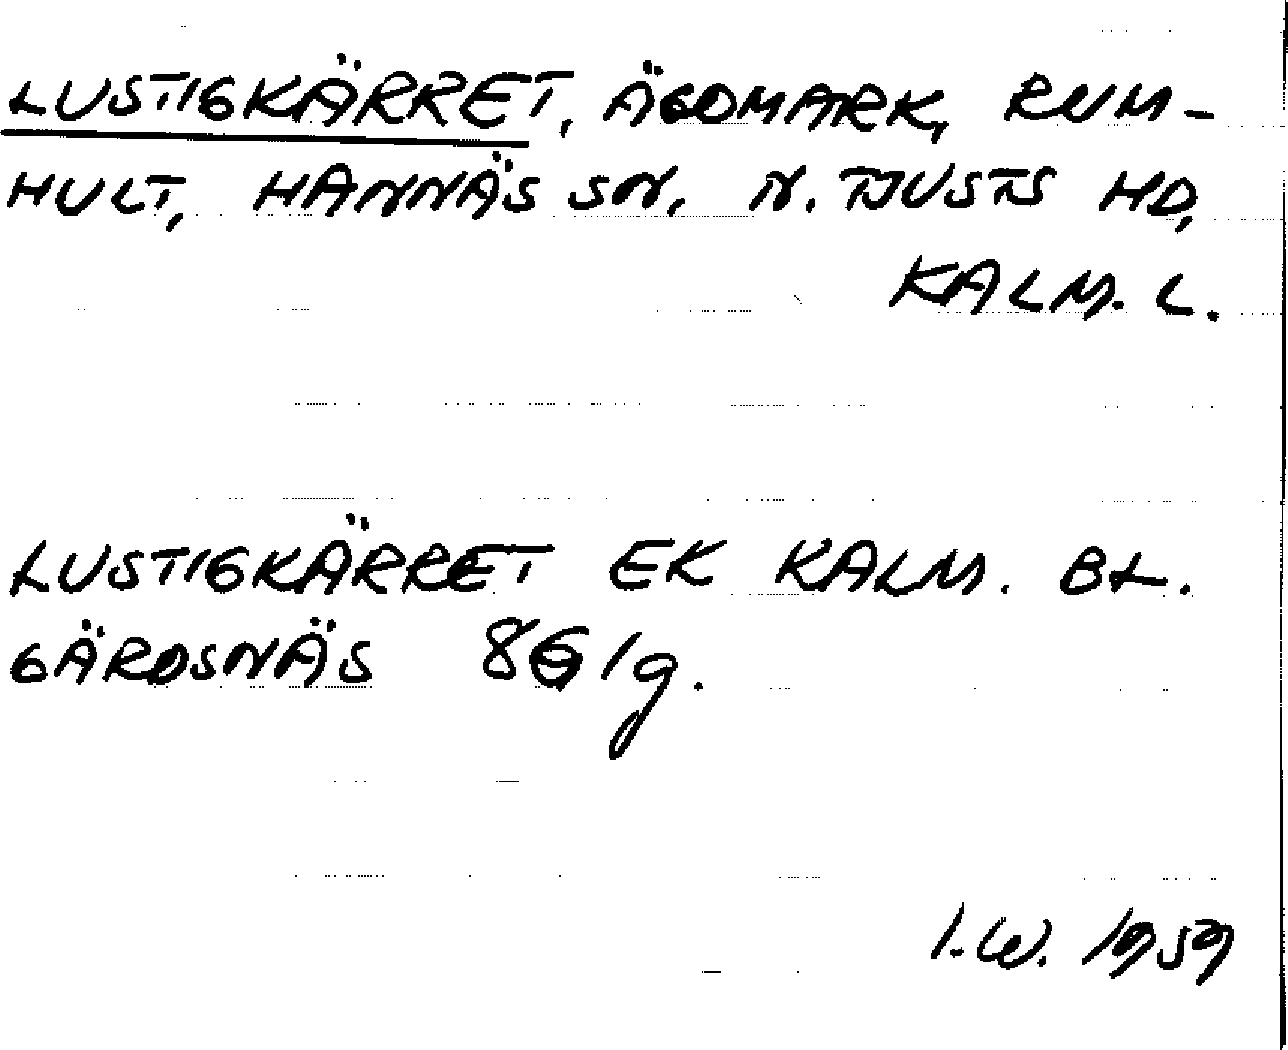 LUSTIGKÄRRET, ÄGOMARK, RUM-
HULT, HANNÄS SN, N. TJUSTS HD,
KALM. L.
LUSTIGKÄRRET EK KALM. BL.
GÄRDSNÄS 8G 1g.
I.W. 1959